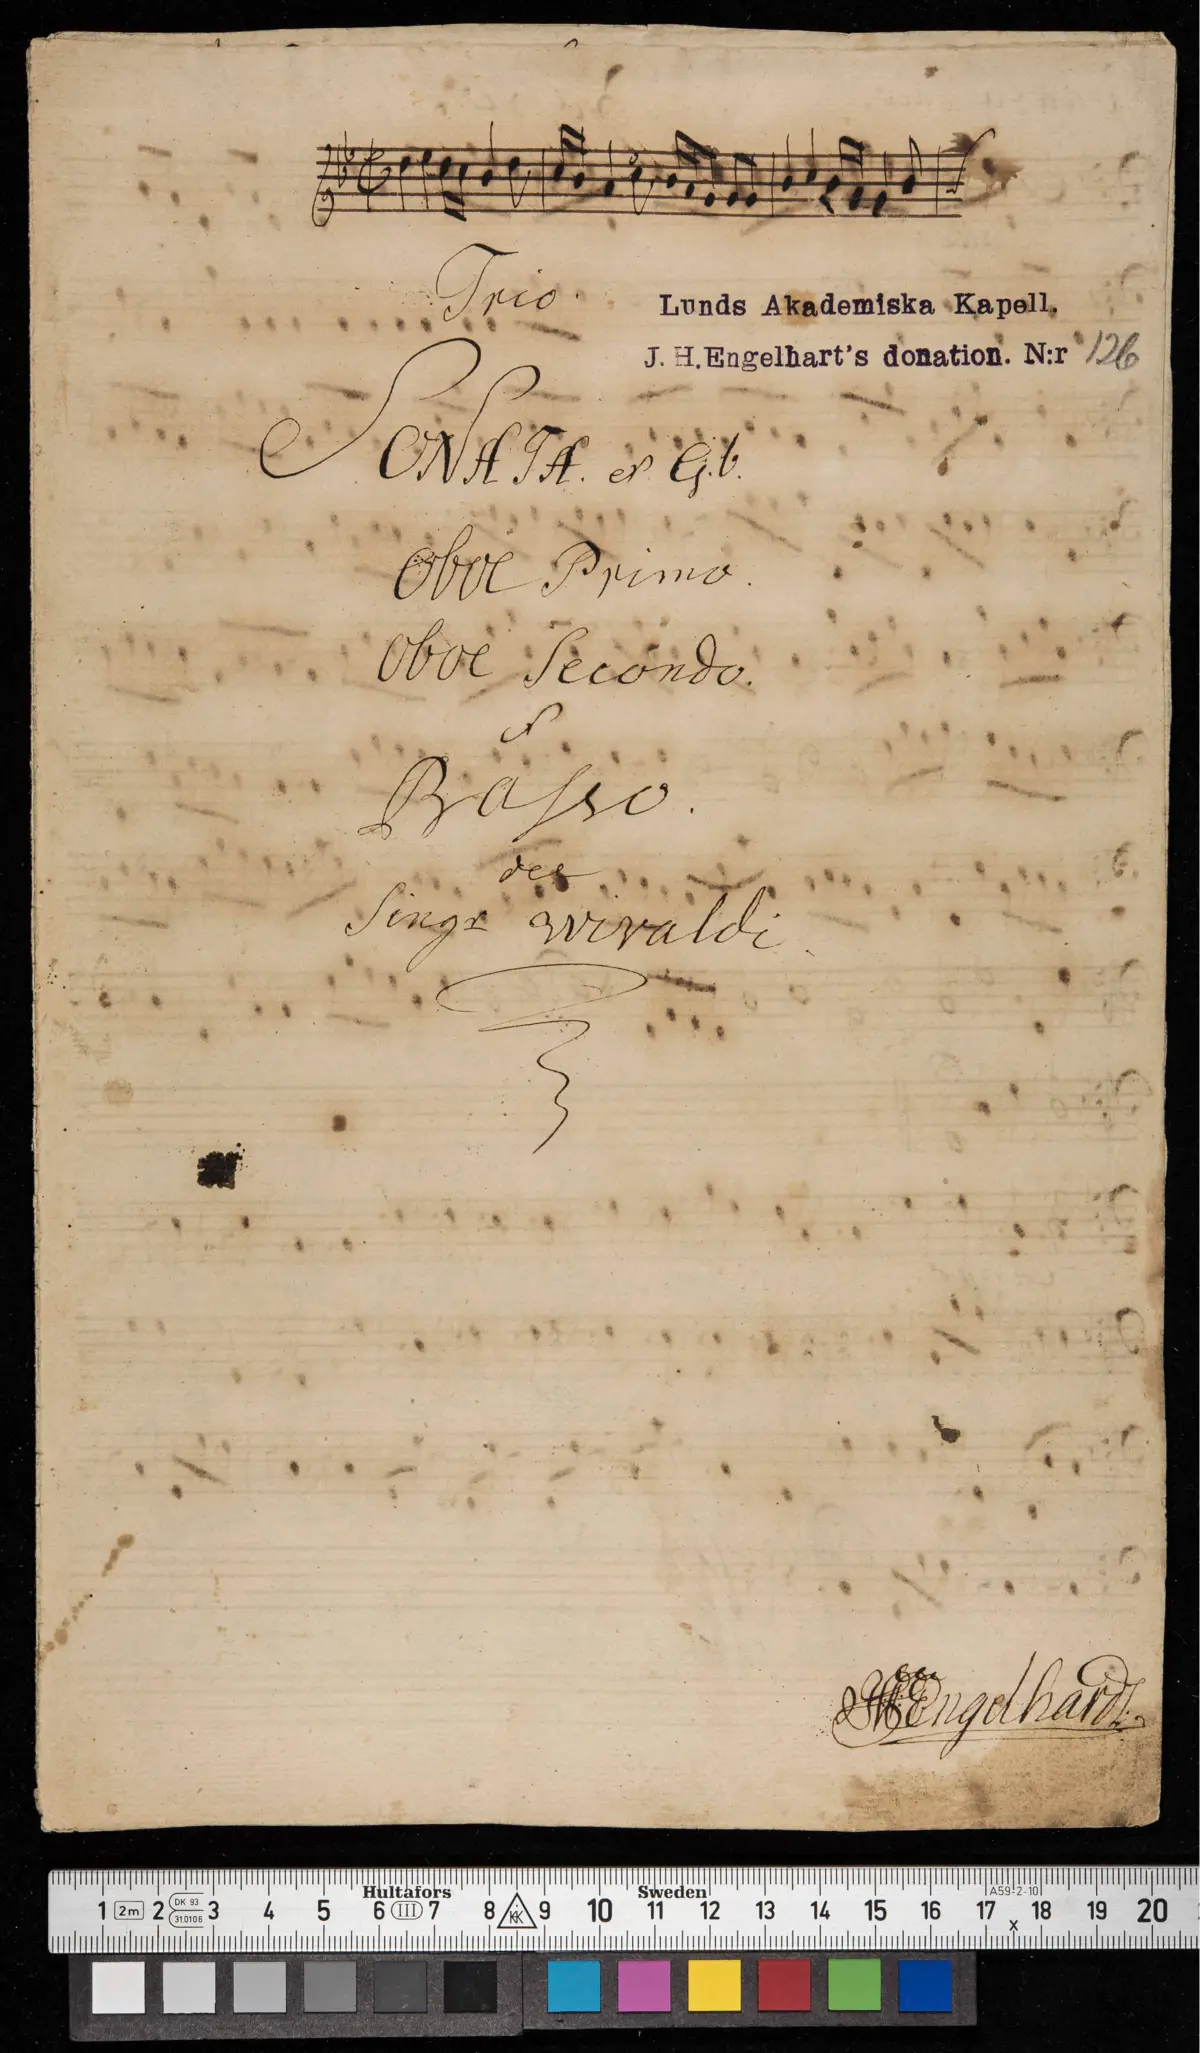 Trio.
Lunds Akademiska Kapell.
J. H. Engelhart's donation. N:r 126
SONATA. ex G.b.
Oboe Primo.
Oboe Secondo.
et
Basso.
del
Singr Wivaldi.
JHEngelhardt.
Hultafors Sweden A59-2-10
1 2m 2 DK 93 31.0106 3 4 5 6 III 7 8 KK 9 10 11 12 13 14 15 16 17 x 18 19 20